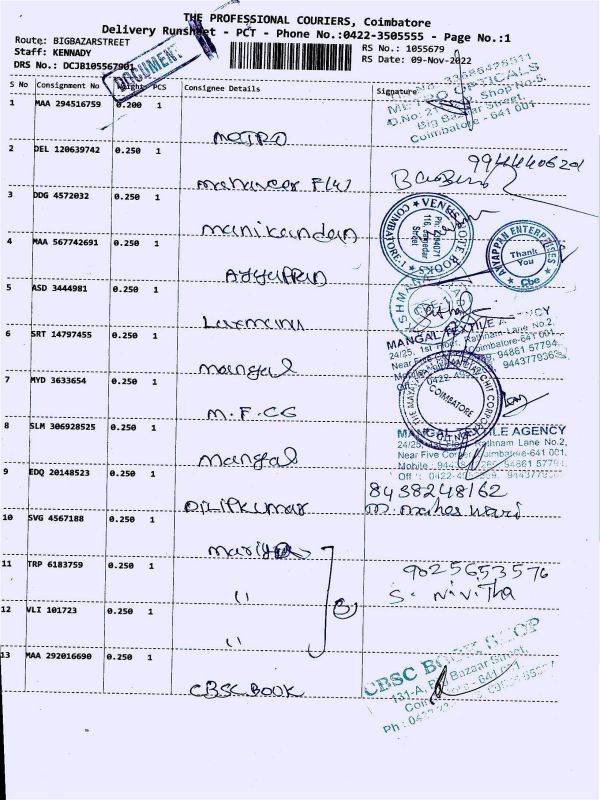 THE PROFESSIONAL COURIERS, Coimbatore
Delivery Runsheet - PCT - Phone No.:0422-3505555 - Page No.:1
Route: BIGBAZARSTREET
RS No.: 1055679
Staff: KENNADY
RS Date: 09-Nov-2022
DRS No.: DCJB105567901
DOCUMENT
S No Consignment No Weight PCS Consignee Details Signature
1 MAA 294516759 0.200 1
METRO OPTICALS
Shop No.5,
Big Bazaar Street,
Coimbatore - 641 001
METRO
2 DEL 120639742 0.250 1
mahaveer
3 DDG 4572032 0.250 1
manikandan
COIMBATORE-1
NOTE BOOKS
4 MAA 567742691 0.250 1
Ayyappan
AYYAPPAN ENTERPRISES
Thank
You
Cbe
5 ASD 3444981 0.250 1
Laxmanu
6 SRT 14797455 0.250 1
mangal
MANGAL TEXTILE AGENCY
24/25, 1st Floor, Rathnam Lane No.2,
Near Five Corner, Coimbatore-641 001.
7 MYD 3633654 0.250 1
M.F.CG
COIMBATORE
8 SLM 306928525 0.250 1
mangal
MANGAL TEXTILE AGENCY
24/25, 1st Floor, Rathnam Lane No.2,
Near Five Corner, Coimbatore-641 001.
9 EDQ 20148523 0.250 1
Dilipkumar
8438248162
M. maheshwari
10 SVG 4567188 0.250 1
mariya
11 TRP 6183759 0.250 1
"
9025653576
S. Nivitha
12 VLI 101723 0.250 1
"
3
13 MAA 292016690 0.250 1
CBSC BOOK
CBSC BOOK SHOP
131-A, Big Bazaar Street,